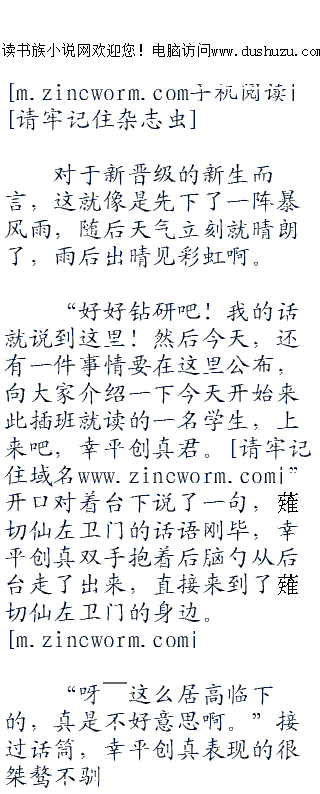 读书族小说网欢迎您！电脑访问www.dushuzu.com
[m.zincworm.com手机阅读i
[请牢记住杂志虫]
对于新晋级的新生而
言，这就像是先下了一阵暴
风雨，随后天气立刻就晴朗
了，雨后出晴见彩虹啊。
“好好钻研吧！我的话
就说到这里！然后今天，还
有一件事情要在这里公布，
向大家介绍一下今天开始来
此插班就读的一名学生，上
来吧，幸平创真君。[请牢记
住域名www.zincworm.comi”
开口对着台下说了一句，薙
切仙左卫门的话语刚毕，幸
平创真双手抱着后脑勺从后
台走了出来，直接来到了薙
切仙左卫门的身边。
[m.zincworm.comi
“呀——这么居高临下
的，真是不好意思啊。”接
过话筒，幸平创真表现的很
桀骜不驯